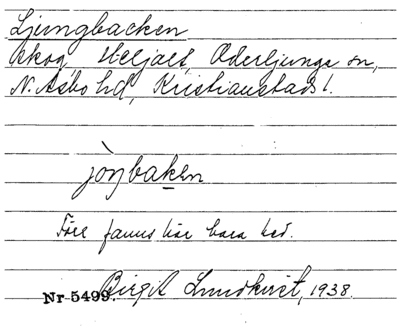 Ljungbacken
skog, Heljalt, Oderljunga sn,
N. Åsbo hd, Kristianstads l.
jòŋbaken
Förr fanns här bara hed.
Nr 5499. Birgit Lundkvist, 1938.